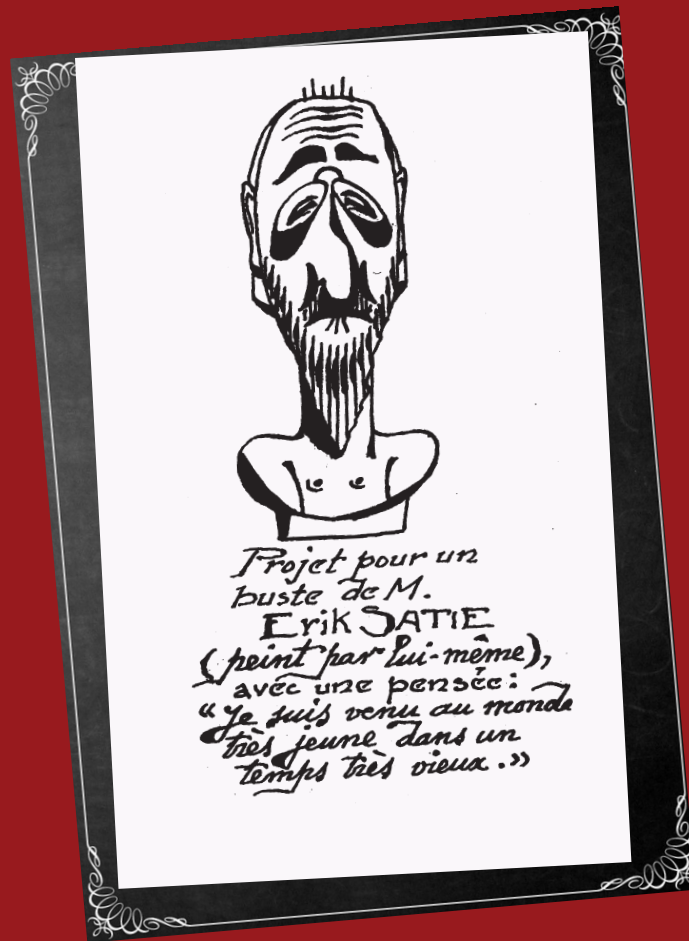 Projet pour un
buste de M.
Erik SATIE
(peint par lui-même),
avec une pensée:
“Je suis venu au monde
très jeune dans un
temps très vieux.”